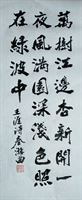 萬樹江邊杏新開一
夜風滿園深淺色照
在綠波中
王涯遊春曲